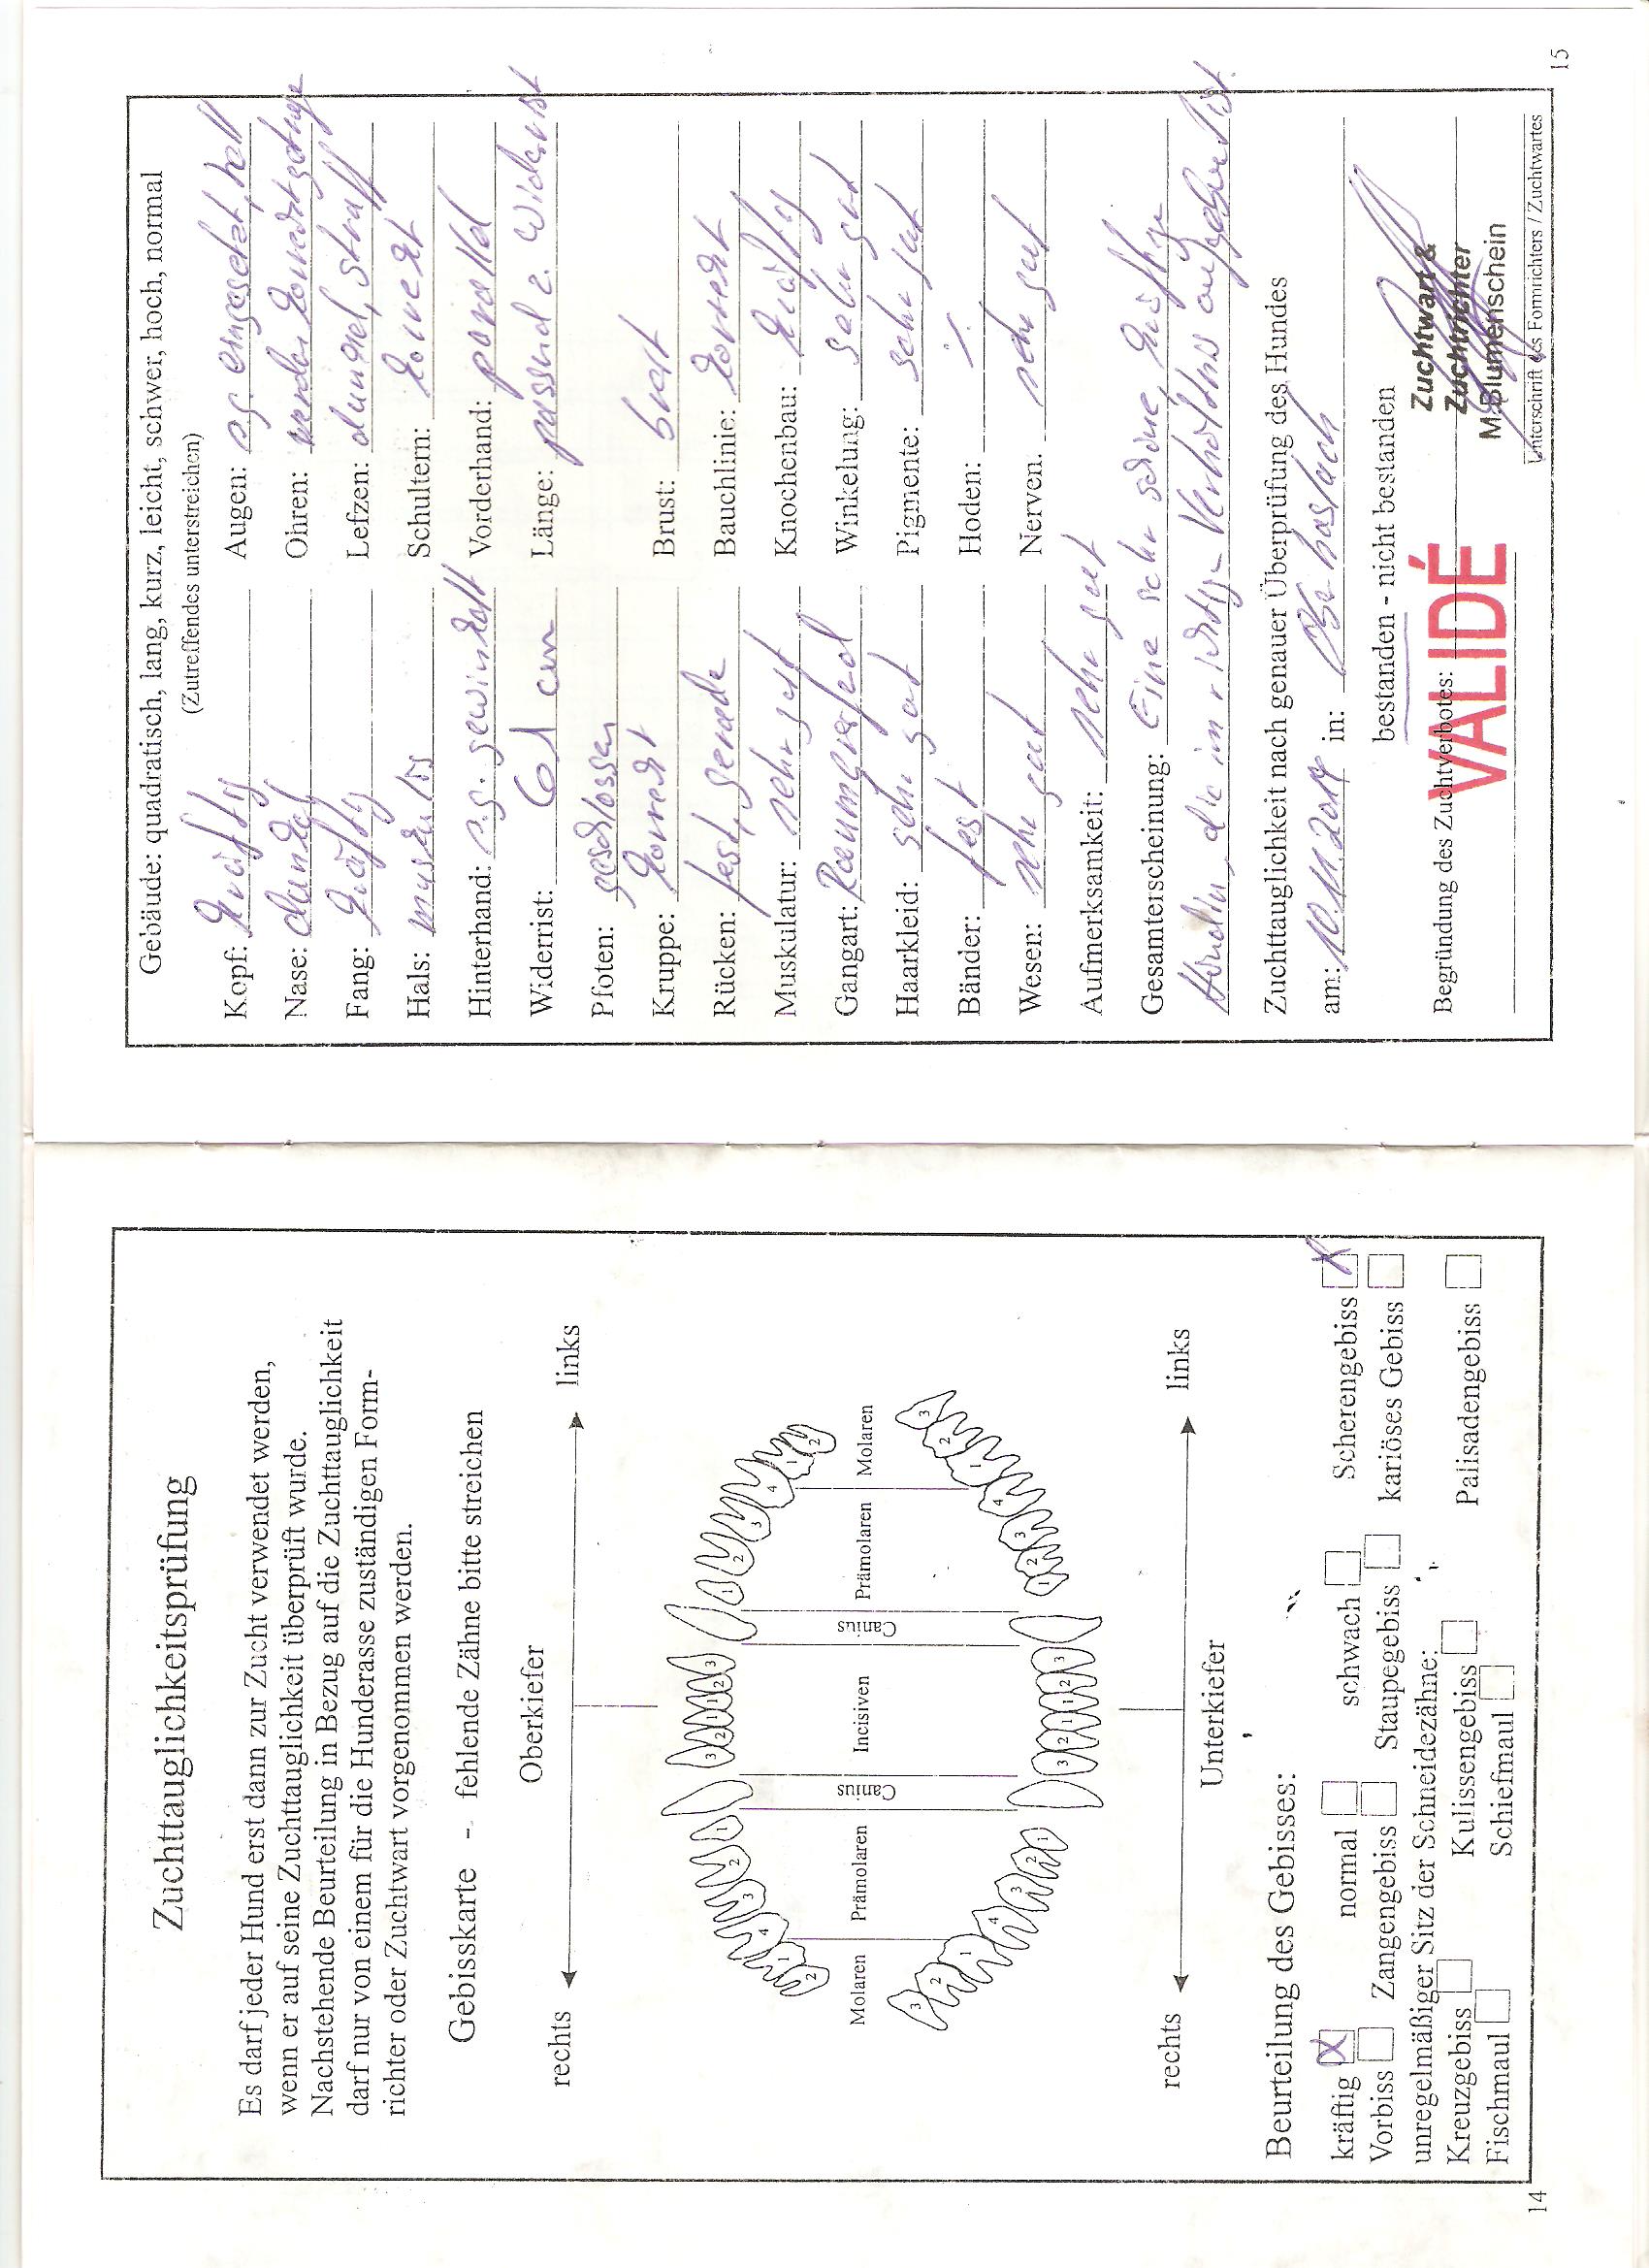 Zuchttauglichkeitsprüfung
Es darf jeder Hund erst dann zur Zucht verwendet werden,
wenn er auf seine Zuchttauglichkeit überprüft wurde.
Nachstehende Beurteilung in Bezug auf die Zuchttauglichkeit
darf nur von einem für die Hunderasse zuständigen Form-
richter oder Zuchtwart vorgenommen werden.
Gebisskarte - fehlende Zähne bitte streichen
Oberkiefer
rechts links
2 1 4 3 2 1 3 2 1 1 2 3 1 2 3 4 1 2
Molaren Prämolaren Canius Incisiven Canius Prämolaren Molaren
3 2 1 4 3 2 1 3 2 1 1 2 3 1 2 3 4 1 2 3
rechts links
Unterkiefer
Beurteilung des Gebisses:
kräftig normal schwach Scherengebiss
Vorbiss Zangengebiss Staupegebiss kariöses Gebiss
unregelmäßiger Sitz der Schneidezähne:
Kreuzgebiss Kulissengebiss Palisadengebiss
Fischmaul Schiefmaul
14
Gebäude: quadratisch, lang, kurz, leicht, schwer, hoch, normal
(Zutreffendes unterstreichen)
Kopf: kräftig Augen: s.g. eingesetzt, hell
Nase: dunkel Ohren: korrekt getragen
Fang: kräftig Lefzen: dunkel, straff
Hals: muskulös Schultern: korrekt
Hinterhand: s.g. gewinkelt Vorderhand: parallel
Widerrist: 61 cm Länge: passend z. Widerrist
Pfoten: geschlossen
Kruppe: korrekt Brust: breit
Rücken: fest, gerade Bauchlinie: korrekt
Muskulatur: sehr gut Knochenbau: kräftig
Gangart: Raumgreifend Winkelung: sehr gut
Haarkleid: sehr gut Pigmente: sehr gut
Bänder: fest Hoden: ·/.
Wesen: sehr gut Nerven. sehr gut
Aufmerksamkeit: sehr gut
Gesamterscheinung: Eine sehr schöne, kräftige
Hündin, die im richtigen Verhältnis aufgebaut ist.
Zuchttauglichkeit nach genauer Überprüfung des Hundes
am: in:
bestanden - nicht bestanden
Begründung des Zuchtverbotes:
VALIDÉ
Zuchtwart &
Zuchtrichter
M.Blumenschein
Unterschrift des Formrichters / Zuchtwartes
15